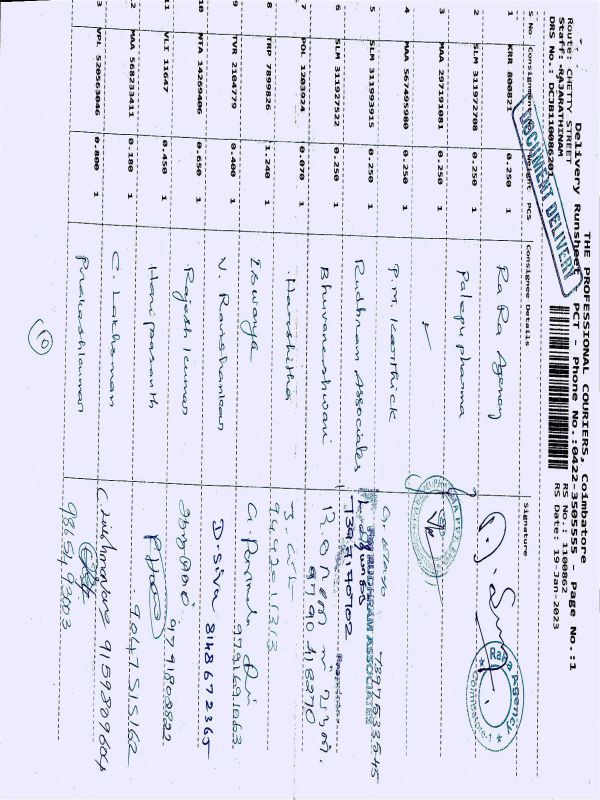 THE PROFESSIONAL COURIERS, Coimbatore
Delivery Runsheet - PCT - Phone No.:0422-3505555 - Page No.:1
Route: CHETTY STREET
RS No.: 1100862
Staff: RAJARATHINAM
RS Date: 19-Jan-2023
DRS No.: DCJB110086201
DOCUMENT DELIVERY
S No Consignment No Weight PCS Consignee Details Signature
1 KRR 800821 0.250 1 Ra Ra Agency
Rara Agency
Coimbatore-1
2 SLM 311972708 0.250 1 Palepu pharma
3 MAA 297191081 0.250 1
4 MAA 567495980 0.250 1 P.M. Karthick 7397533545
5 SLM 311993915 0.250 1 Rudhram Associates
For RUDHRAM ASSOCIATES
7397170702
Proprietor
6 SLM 311927522 0.250 1 Bhuvaneshwari
9790418270
7 POL 1203924 0.070 1 Harshitha
9442011313
8 TRP 7899826 1.240 1 Iswarya
9791691063
9 TVR 2104779 0.400 1 N. Ravishankar D. Siva 8148672365
10 NTA 14269406 0.650 1 Rajesh kumar
9791809822
11 VLI 11647 0.450 1 Hari prasanth
9047515162
12 MAA 568233411 0.180 1 C. Lakshmanan
9159809604
13 VPL 520563046 0.800 1 Prakashkumar
9865493003
10